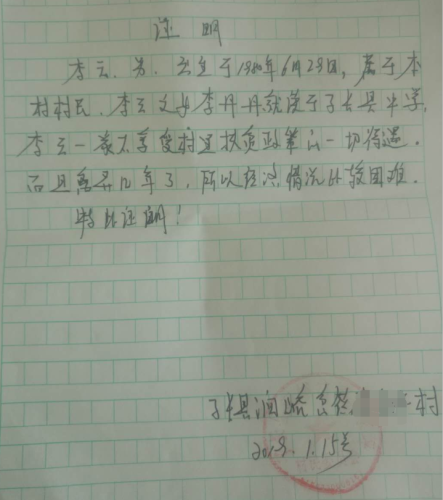 证明
李云、男、出生于1980年6月28日，属于本
村村民、李云之女李丹丹就读于子长县中学，
李云一家不享受村里扶贫政策的一切待遇，
而且离异几年了，所以经济情况比较困难。
特此证明！
子长县涧峪岔镇 村
2019.1.15号